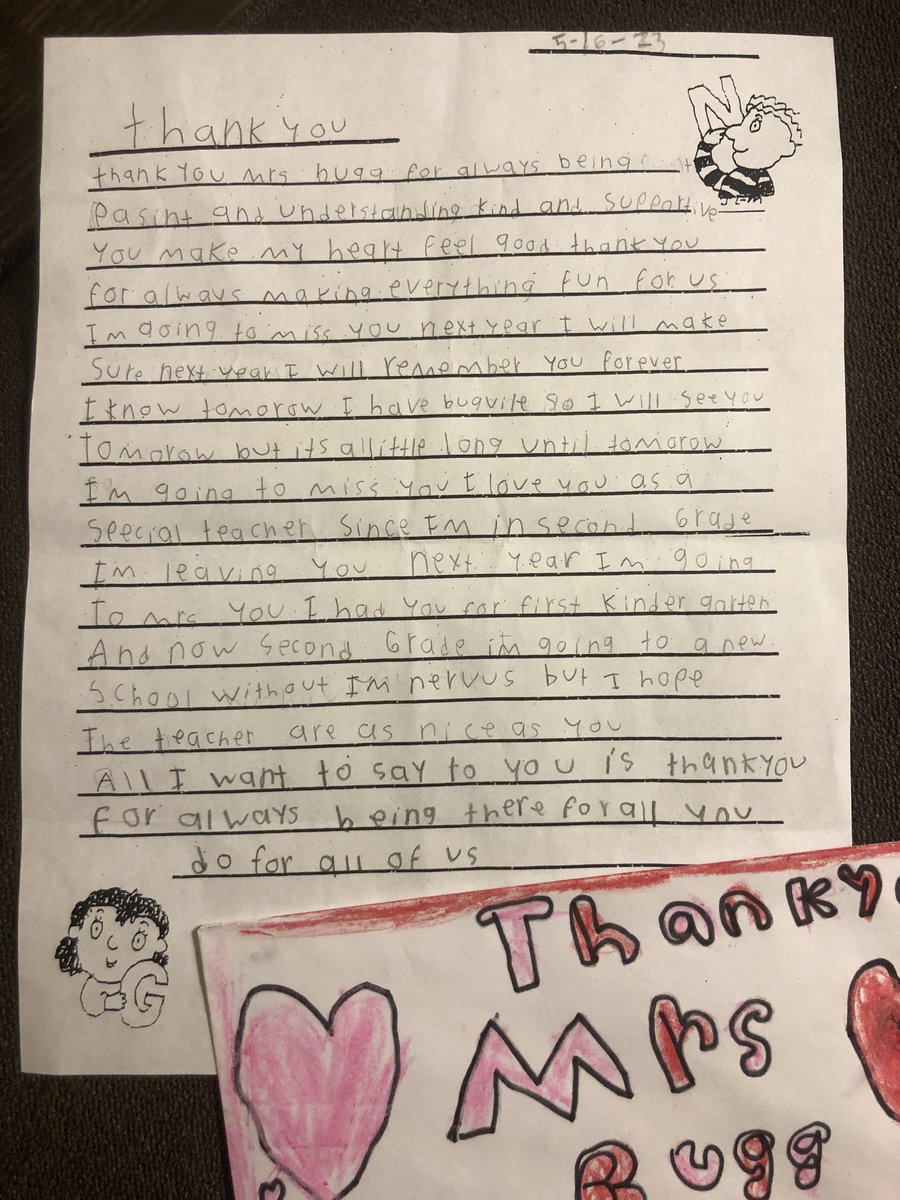 5-16-23
thank you
thank you mrs bugg for always being
Pasint and understanding kind and supportive
you make my heart feel good thank you
for always making everything fun for us
Im going to miss you next year I will make
Sure next year I will remember you forever
I know tomorow I have buguile so I will see you
tomorow but its allittle long until tomorow
I'm going to miss you I love you as a
special teacher since I'm in second Grade
I'm leaving you next year Im going
To mrs you I had you for first kinder garten
And now second Grade i'm going to a new
School without I'm nervus but I hope
The teacher are as nice as you
All I want to say to you is thankyou
For always being there for all you
do for all of us
N
JEM
G
Thanky
Mrs
Bugg